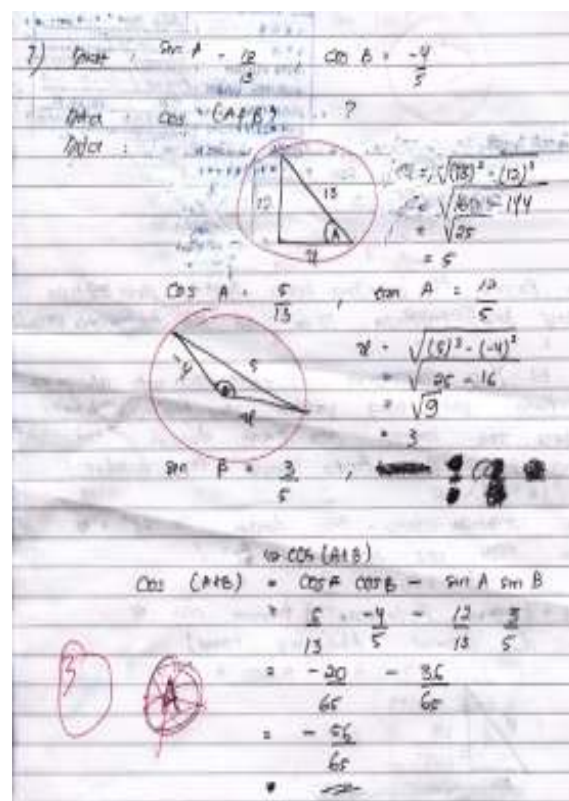 7) Dik : sin A = 12/13 , cos B = -4/5
Dit : cos (A+B) ?
12
13
A
x
= √(13)² - (12)²
- 144
= √25
= 5
cos A = 5/13 , tan A = 12/5
-4
5
x
x = √(5)² - (-4)²
= √25 - 16
= √9
= 3
sin B = 3/5 ,
cos (A+B)
Cos (A+B) = cos A cos B - sin A sin B
= 5/13 -4/5 - 12/13 3/5
= -20/65 - 36/65
= - 56/65
3
A